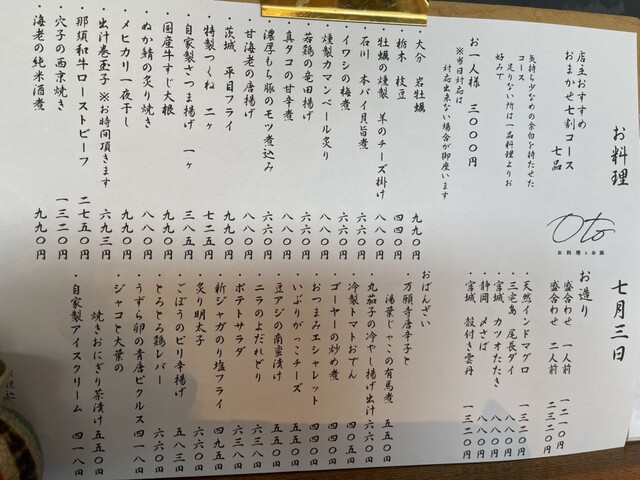 お料理
七月三日
Oto
お料理とお酒
店主おすすめ
おまかせ七割コース
七品
気持ち少なめの余白を持たせた
コース
足りない所は一品料理よりお
好みで
お一人様 三〇〇〇円
※当日対応は
対応出来ない場合が御座います
・大分 岩牡蠣 九九〇円
・栃木 枝豆 四四〇円
・牡蠣の燻製 羊のチーズ掛け 八八〇円
・石川 本バイ貝旨煮 六六〇円
・イワシの梅煮 六六〇円
・燻製カマンベール炙り 八八〇円
・若鶏の竜田揚げ 八八〇円
・真タコの甘辛煮 八八〇円
・濃厚もち豚のモツ煮込み 六六〇円
・甘海老の唐揚げ 六六〇円
・茨城 平目フライ 九九〇円
・特製つくね 二ヶ 七二五円
・自家製さつま揚げ 一ヶ 三八五円
・国産牛すじ大根 九九〇円
・ぬか鯖の炙り焼き 八八〇円
・メヒカリ一夜干し 九九〇円
・出汁巻玉子 ※お時間頂きます 六九三円
・那須和牛ローストビーフ 二七五〇円
・穴子の西京焼き 一三二〇円
・海老の純米酒煮 九九〇円
お造り
盛合わせ 一人前 一二一〇円
盛合わせ 二人前 二三二〇円
・天然インドマグロ 一三二〇円
・三宅島 尾長ダイ 八八〇円
・宮城 カツオたたき 八八〇円
・静岡 〆さば 八八〇円
・宮城 殻付き雲丹 一三二〇円
おばんざい
・万願寺唐辛子と
湯葉じゃこの有馬煮 五五〇円
・丸茄子の冷やし揚げ出汁 六六〇円
・冷製トマトおでん 四四〇円
・ゴーヤーの炒め煮 四四〇円
・おつまみエシャレット 四四〇円
・いぶりがっこチーズ 五五〇円
・豆アジの南蛮漬け 五五〇円
・ニラのよだれどり 六三八円
・ポテトサラダ 六三八円
・新ジャガのり塩フライ 四九五円
・炙り明太子 六六〇円
・ごぼうのピリ辛揚げ 五八三円
・とろとろ鶏レバー 六六〇円
・うずら卵の青唐ピクルス 四一八円
・ジャコと大葉の
焼きおにぎり茶漬け 五五〇円
・自家製アイスクリーム 四一八円